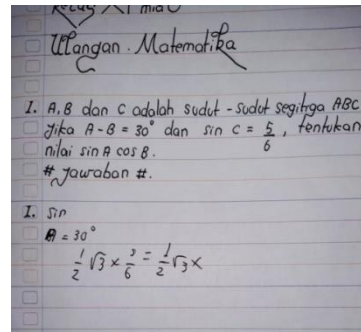 Kelas XI mia
Ulangan. Matematika
1. A, B dan C adalah sudut-sudut segitiga ABC
Jika A-B = 30° dan sin C = 5/6, tentukan
nilai sin A cos B.
# Jawaban #.
1. Sin
A = 30°
1/2 √3 × 3/6 = 1/2 √3 ×